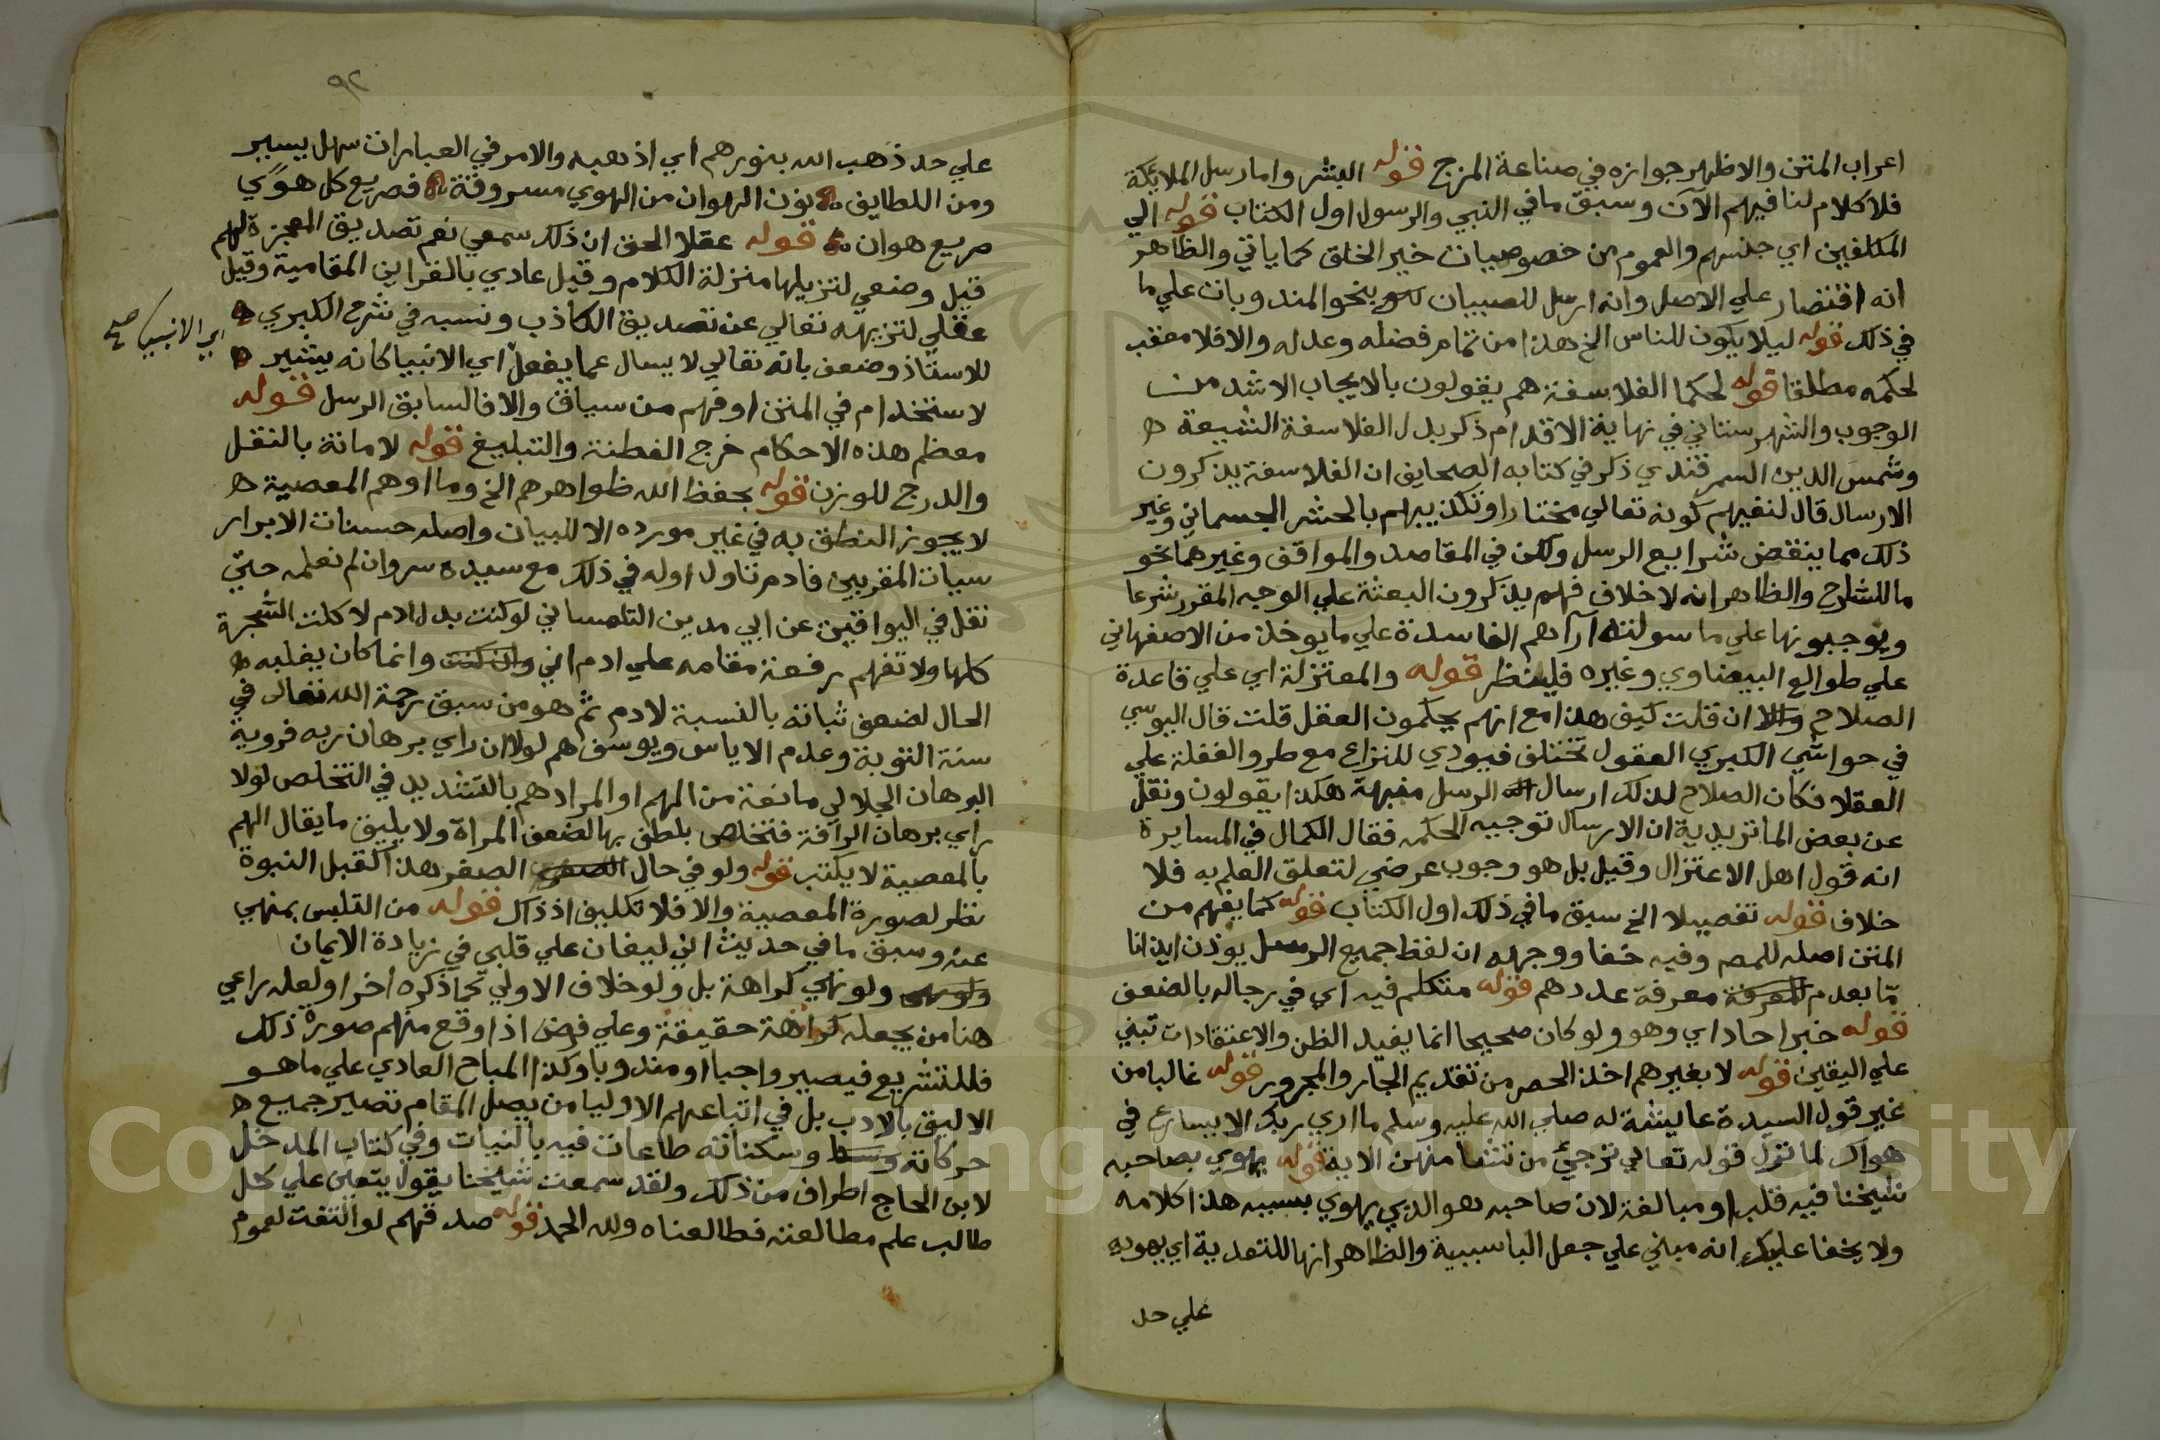 اعراب المتن والاظهر جوازه في صناعة المزج قوله البشر واما رسل الملايكة
فلا كلام لنا فيهم الآن وسبق ما في النبي والرسول اول الكتاب قوله الي
المكلفين اي جنسهم والعموم من خصوصيات خير الخلق كما ياتي والظاهر
انه اقتصار علي الاصل وانه ارسل للصبيان بنحو المندوبات علي ما
في ذلك قوله ليلا يكون للناس الخ هذا من تمام فضله وعدله والا فلا معقب
لحكمه مطلقا قوله لحكما الفلاسفة هم يقولون بالايجاب الاشد من
الوجوب والشهرستاني في نهاية الاقدام ذكر بدل الفلاسفة الشيعة ه
وشمس الدين السمرقندي ذكر في كتابه الصحايف ان الفلاسفة يذكرون
الارسال قال لنفيهم كونه تعالي مختارا وتكذيبهم بالحشر الجسماني وغير
ذلك مما ينقض شرايع الرسل ولكن في المقاصد والمواقف وغيرهما نحو
ما للشارح والظاهر انه لا خلاف فهم يذكرون البعثة علي الوجه المقرر شرعا
ويوجبونها علي ما سولته آراهم الفاسدة علي ما يوخذ من الاصفهاني
علي طوالع البيضاوي وغيره فلينظر قوله والمعتزلة اي علي قاعدة
الصلاح ان قلت كيف هذا مع انهم يحكمون العقل قلت قال اليوسي
في حواشي الكبري العقول تختلف فيودي للنزاع مع طرو الغفلة علي
العقلا فكان الصلاح لذلك ارسال الرسل منبهة هكذا يقولون ونقل
عن بعض الماتريدية ان الارسال توجيه الحكمه فقال الكمال في المسايرة
انه قول اهل الاعتزال وقيل بل هو وجوب عرضي لتعلق العلم به فلا
خلاف قوله تفصيلا الخ سبق ما في ذلك اول الكتاب قوله كما يفهم من
المتن اصله للمص وفيه خفا ووجهه ان لفظ جميع الرسل يوذن ايذانا
مّا بعدم معرفة عددهم قوله متكلم فيه اي في رجاله بالضعف
قوله خبر احاد اي وهو ولو كان صحيحا انما يفيد الظن والاعتقادات تبني
علي اليقين قوله لا بغيرهم اخذ الحصر من تقديم الجار والمجرور قوله غالبا من
غير قول السيدة عايشة له صلي الله عليه وسلم ما اري ربك الا يسارع في
هواك لما نزل قوله تعالي ترجئ من تشا منهن الاية قوله يهوي بصاحبه
شيخنا فيه قلب او مبالغة لان صاحبه هو الذي يهوي بسببه هذا كلامه
ولا يخفا عليك انه مبني علي جعل البا سببية والظاهر انها للتعدية اي يهويه
علي حد
٩٢
علي حد ذهب الله بنورهم اي اذهبه والامر في العبارات سهل يسير
ومن اللطايف نون الهوان من الهوي مسروقة فصريع كل هوًي
صريع هوان قوله عقلا الحق ان ذلك سمعي نعم تصديق المعجزة لهم
قيل وضعي لتنزيلها منزلة الكلام وقيل عادي بالقراين المقامية وقيل
عقلي لتنزيهه تعالي عن تصديق الكاذب ونسبه في شرح الكبري ه
للاستاذ وضعف بانه تعالي لا يسال عما يفعل اي الانبيا كانه يشير ه
اي الانبيا صح
لاستخدام في المتن او فهم من سياق والا فالسابق الرسل قوله
معظم هذه الاحكام خرج الفطنة والتبليغ قوله لامانة بالنقل
والدرج للوزن قوله بحفظ الله ظواهرهم الخ وما اوهم المعصية ه
لا يجوز النطق به في غير مورده الا للبيان واصله حسنات الابرار
سيات المقربين فادم تناول اوله في ذلك مع سيده سر وان لم نعلمه حتي
نقل في اليواقيت عن ابي مدين التلمساني لو كنت بدل ادم لاكلت الشجرة
كلها ولا تفهم رفعة مقامه علي ادم اني وانما كان يغلبه ه
الحال لضعف ثباته بالنسبة لادم ثم هو من سبق رحمة الله تعالى في
سنة التوبة وعدم الاياس ويوسف هم لولا ان راي برهان ربه فروية
البرهان الجلالي مانعة من الهم او المراد هم بالتشديد في التخلص لولا
راي برهان الرافة فتخلص بلطف بها لضعف المراة ولا يليق ما يقال الهم
بالمعصية لا يكتب قوله ولو في حال الصغر هذا كقبل النبوة
نظر لصورة المعصية والا فلا تكليف اذ ذاك قوله من التلبس بمنهي
عنه وسبق ما في حديث اني ليغان علي قلبي في زيادة الايمان
ولو نهي كراهة بل ولو خلاف الاولي كما ذكره اخرا ولعله راعي
هنا من يجعله كراهة حقيقة وعلي فرض اذا وقع منهم صورة ذلك
فللتشريع فيصير واجبا او مندوبا وكذا المباح العادي علي ما هو
الاليق بالادب بل في اتباعهم الاوليا من يصل المقام تصير جميع ه
حركاته وسكناته طاعات فيه بالنيات وفي كتاب المدخل
لابن الحاج اطراف من ذلك ولقد سمعت شيخنا يقول يتعين علي كل
طالب علم مطالعته فطالعناه ولله الحمد قوله صدقهم لو التفت لعموم
Copyright © King Saud University